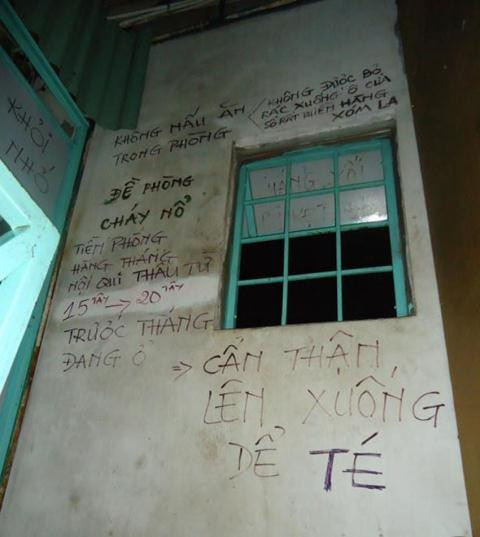 KHÓI
NHỎ
KHÔNG NẤU ĂN
TRONG PHÒNG
KHÔNG ĐƯỢC BỎ
RÁC XUỐNG Ô CỬA
SỔ RẤT PHIỀN HÀNG
XÓM LA
ĐỀ PHÒNG
CHÁY NỔ
TIỀN PHÒNG
HÀNG THÁNG
NỘI QUI THÂU TỪ
15 TÂY → 20 TÂY
TRƯỚC THÁNG
ĐANG Ở
=> CẨN THẬN
LÊN XUỐNG
DỄ TÉ